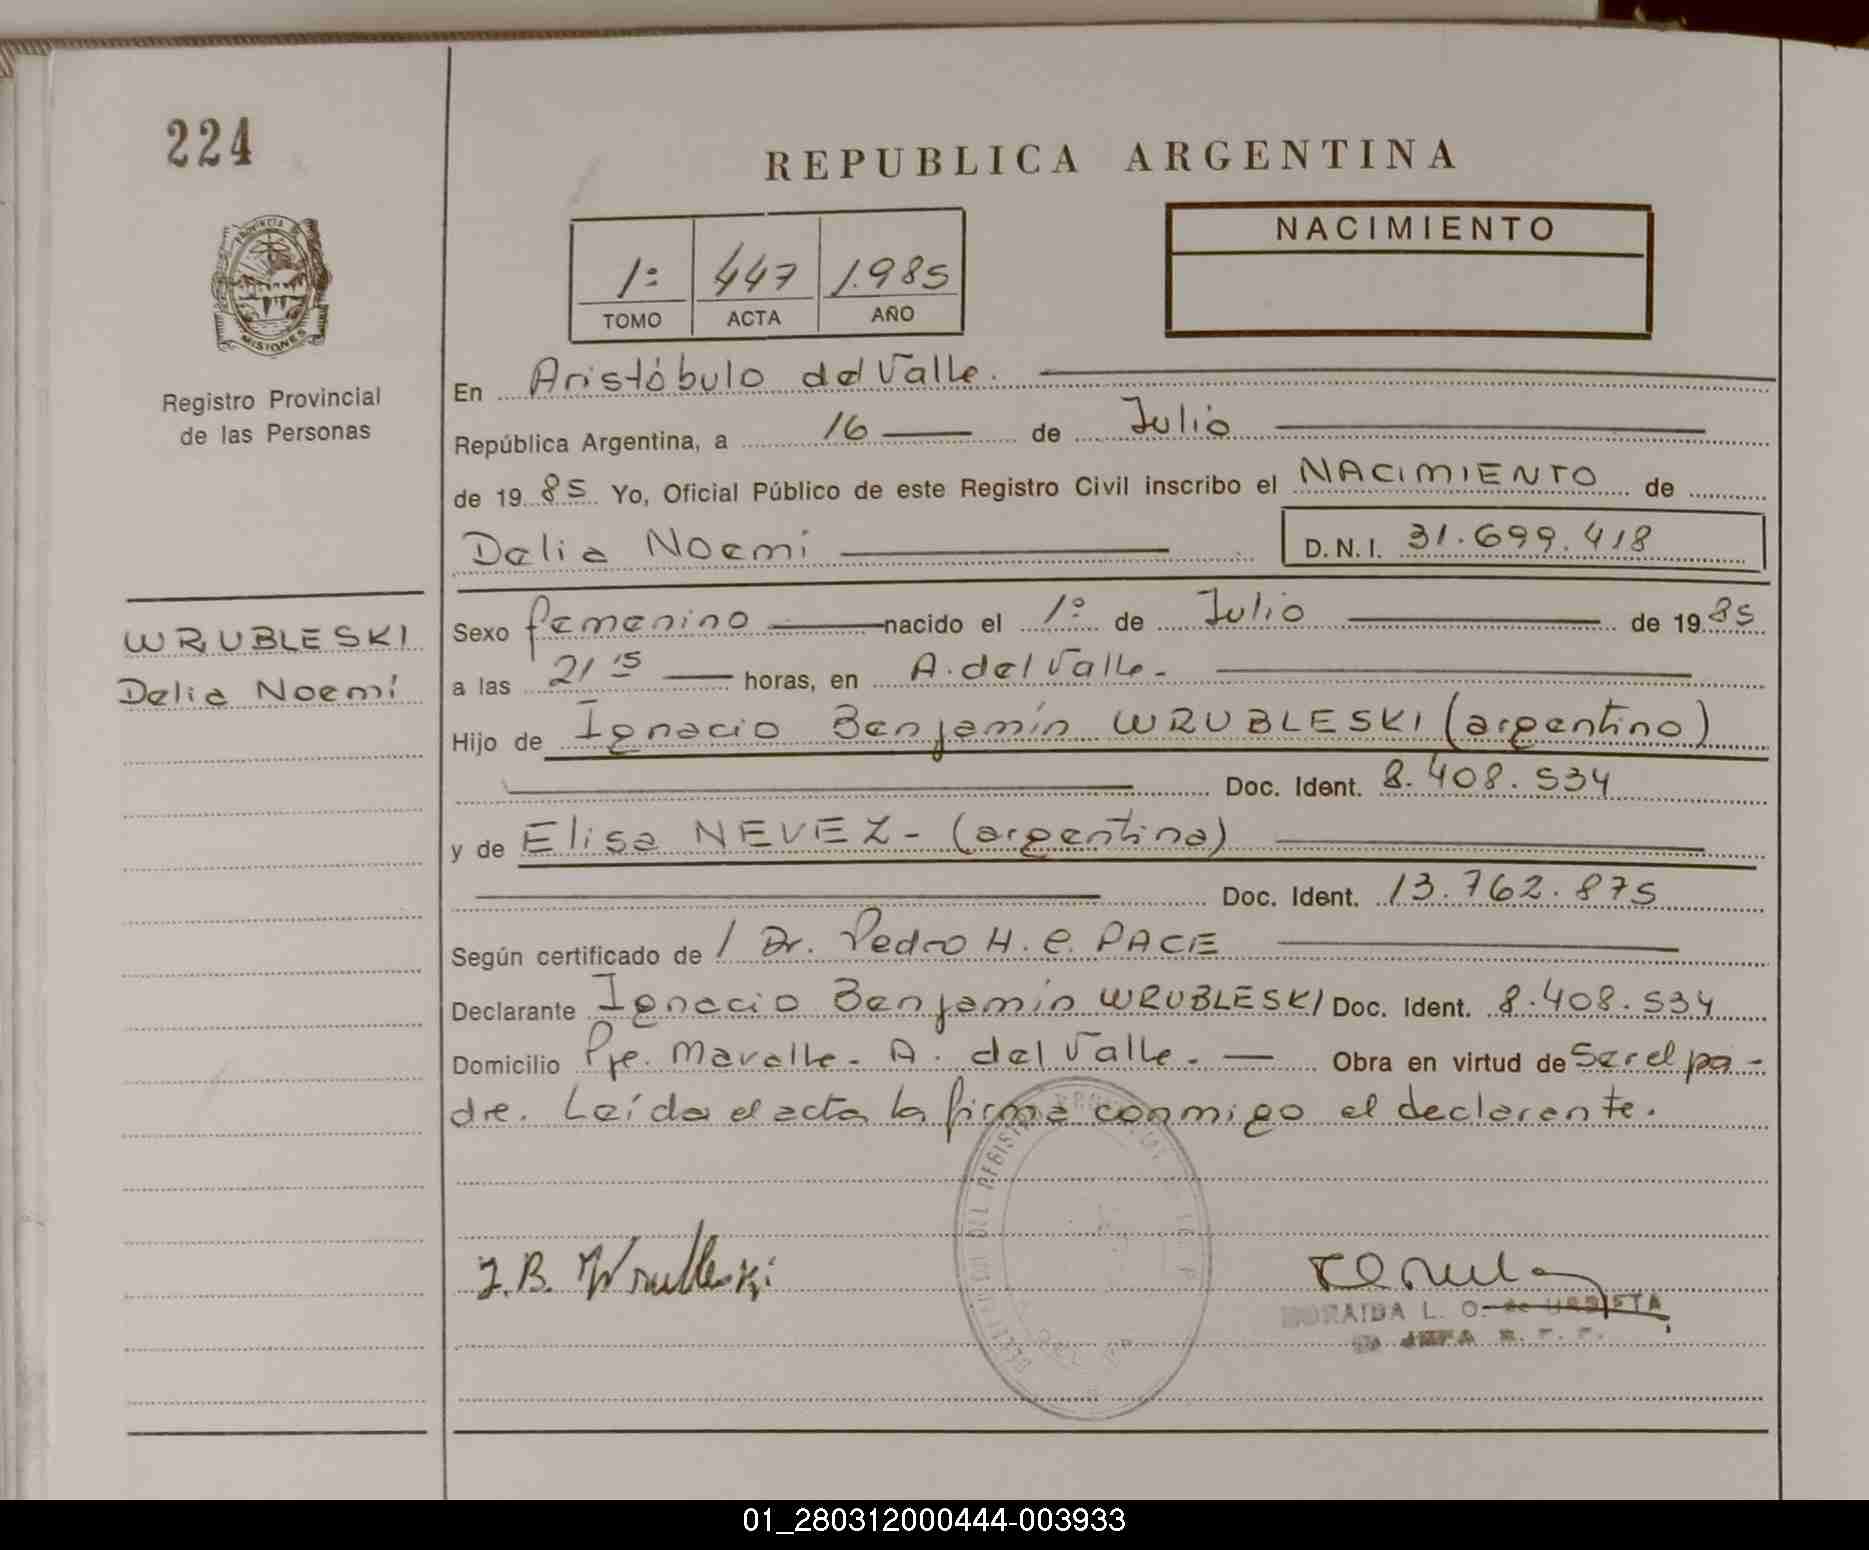 224
REPUBLICA ARGENTINA
NACIMIENTO
1º 447 1.985
TOMO ACTA AÑO
PROVINCIA DE
MISIONES
Registro Provincial
de las Personas
En Aristóbulo del Valle.
República Argentina, a 16 de Julio
de 1985 Yo, Oficial Público de este Registro Civil inscribo el NACIMIENTO de
Delia Noemí D.N.I. 31.699.418
WRUBLESKI
Delia Noemí
Sexo femenino nacido el 1º de Julio de 1985
a las 21 15 horas, en A. del Valle.-
Hijo de Ignacio Benjamín WRUBLESKI (argentino)
Doc. Ident. 8.408.534
y de Elisa NEVEZ - (argentina)
Doc. Ident. 13.762.875
Según certificado de / Dr. Pedro H. C. PACE
Declarante Ignacio Benjamín WRUBLESKI Doc. Ident. 8.408.534
Domicilio Pje. Mavalle - A. del Valle. - Obra en virtud de Ser el pa-
dre. Leída el acta la firma conmigo el declarante.
DEL REGISTRO
I.B. Wrubleski
L. O. de URBIETA
JEFA
01_280312000444-003933